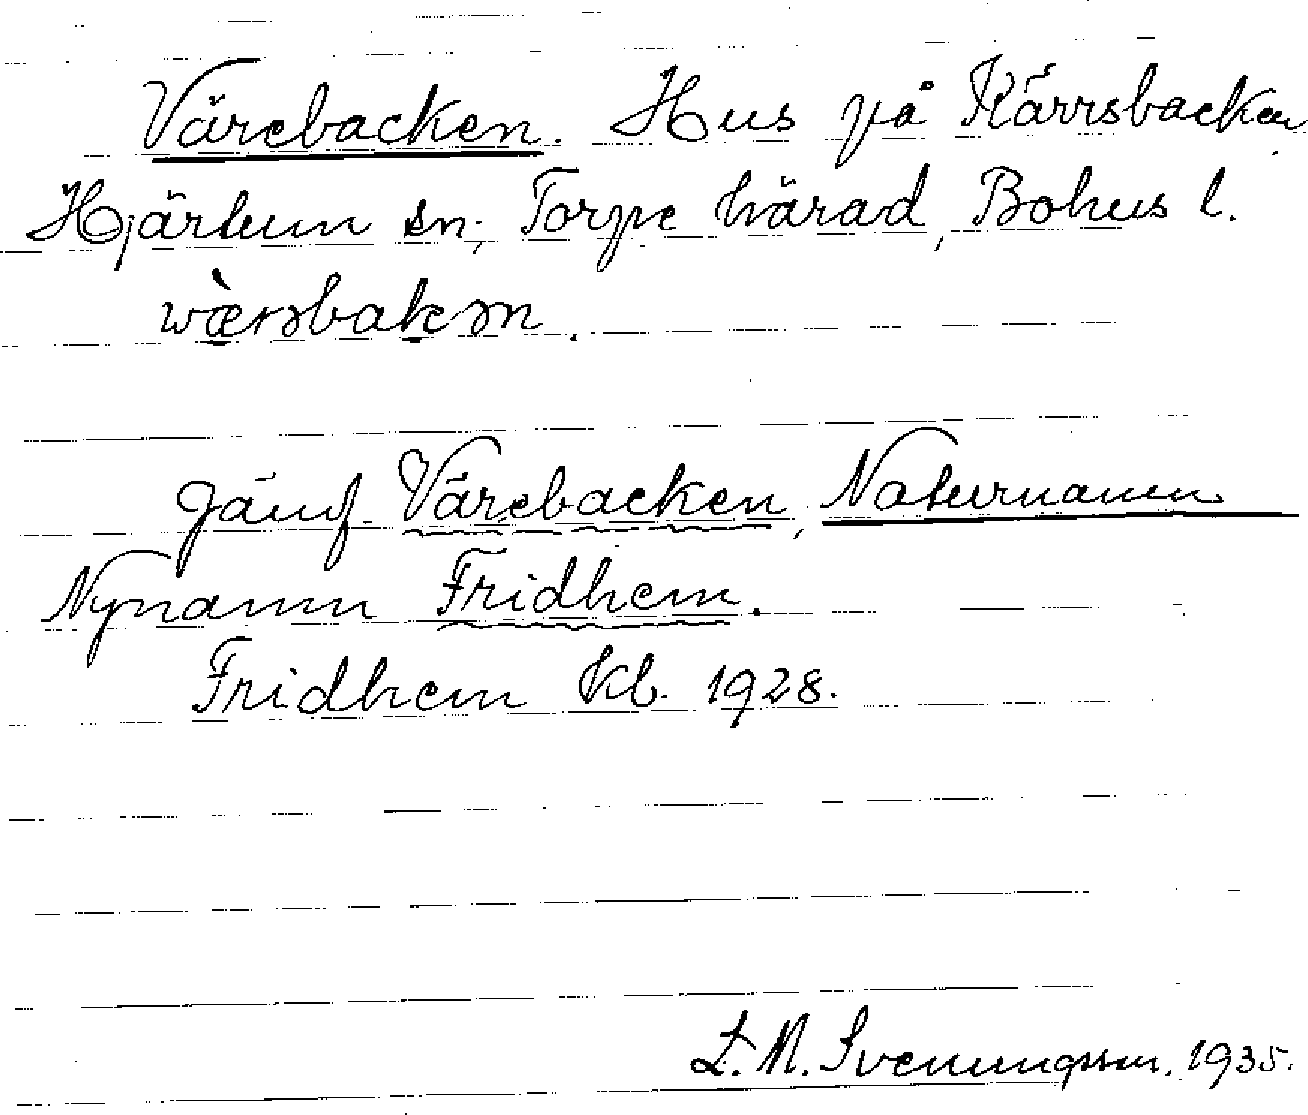 Värebacken. Hus på Kärrsbacken
Hjärtum sn; Torpe härad, Bohus l.
wàrəbakən.
Jämf. Värebacken, Naturnamn
Nynamn Fridhem.
Fridhem kb. 1928.
L. M. Svenungsson. 1935.